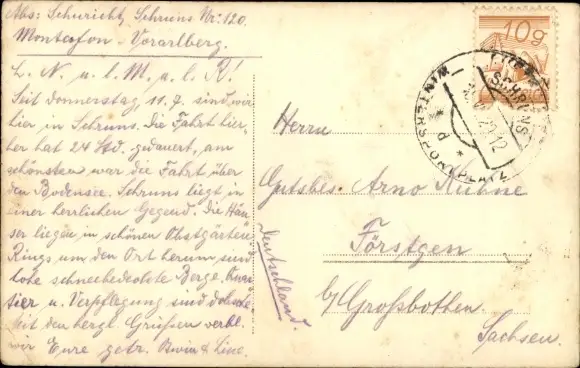 Abs: Schuricht, Schruns Nr: 120.
Montafon - Vorarlberg.
L. N. u. l. M. u. l. R!
Seit Donnerstag, 11.7. sind wir
hier in Schruns. Die Fahrt hier-
her hat 24 Std. gedauert, am
schönsten war die Fahrt über
den Bodensee. Schruns liegt in
einer herrlichen Gegend. Die Häu-
ser liegen in schönen Obstgärten
Rings um den Ort herum sind
hohe schneebedeckte Berge. Quar-
tier u. Verpflegung sind
Mit den herzl. Grüßen verbl.
wir Eure getr. & Line.
10g
SCHRUNS
WINTERSPORTPLATZ
Herrn
Gutsbes. Arno Kühne
Förstgen
b/ Großbothen.
Sachsen.
Deutschland